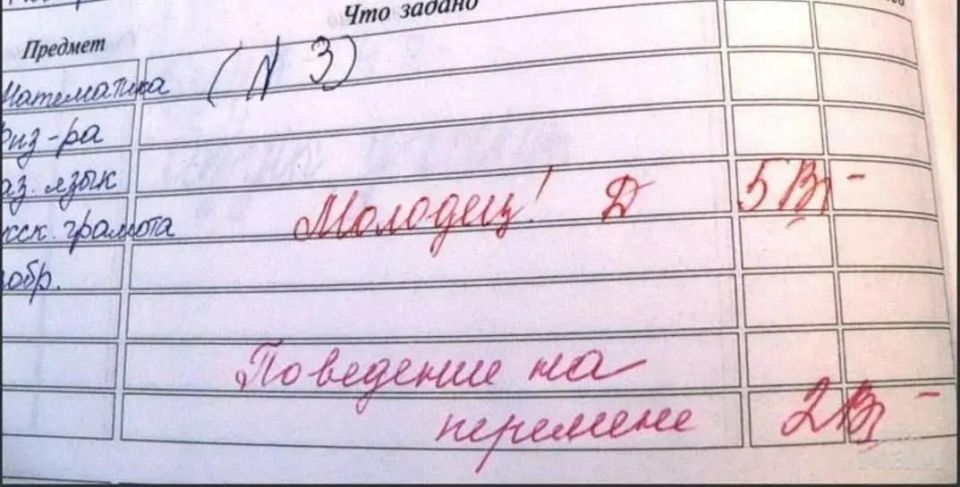 Что задано
Предмет
Математика (N 3)
физ-ра
аз. язык
сск. грамота Молодец! Д 5
обр.
Поведение на
перемене 2